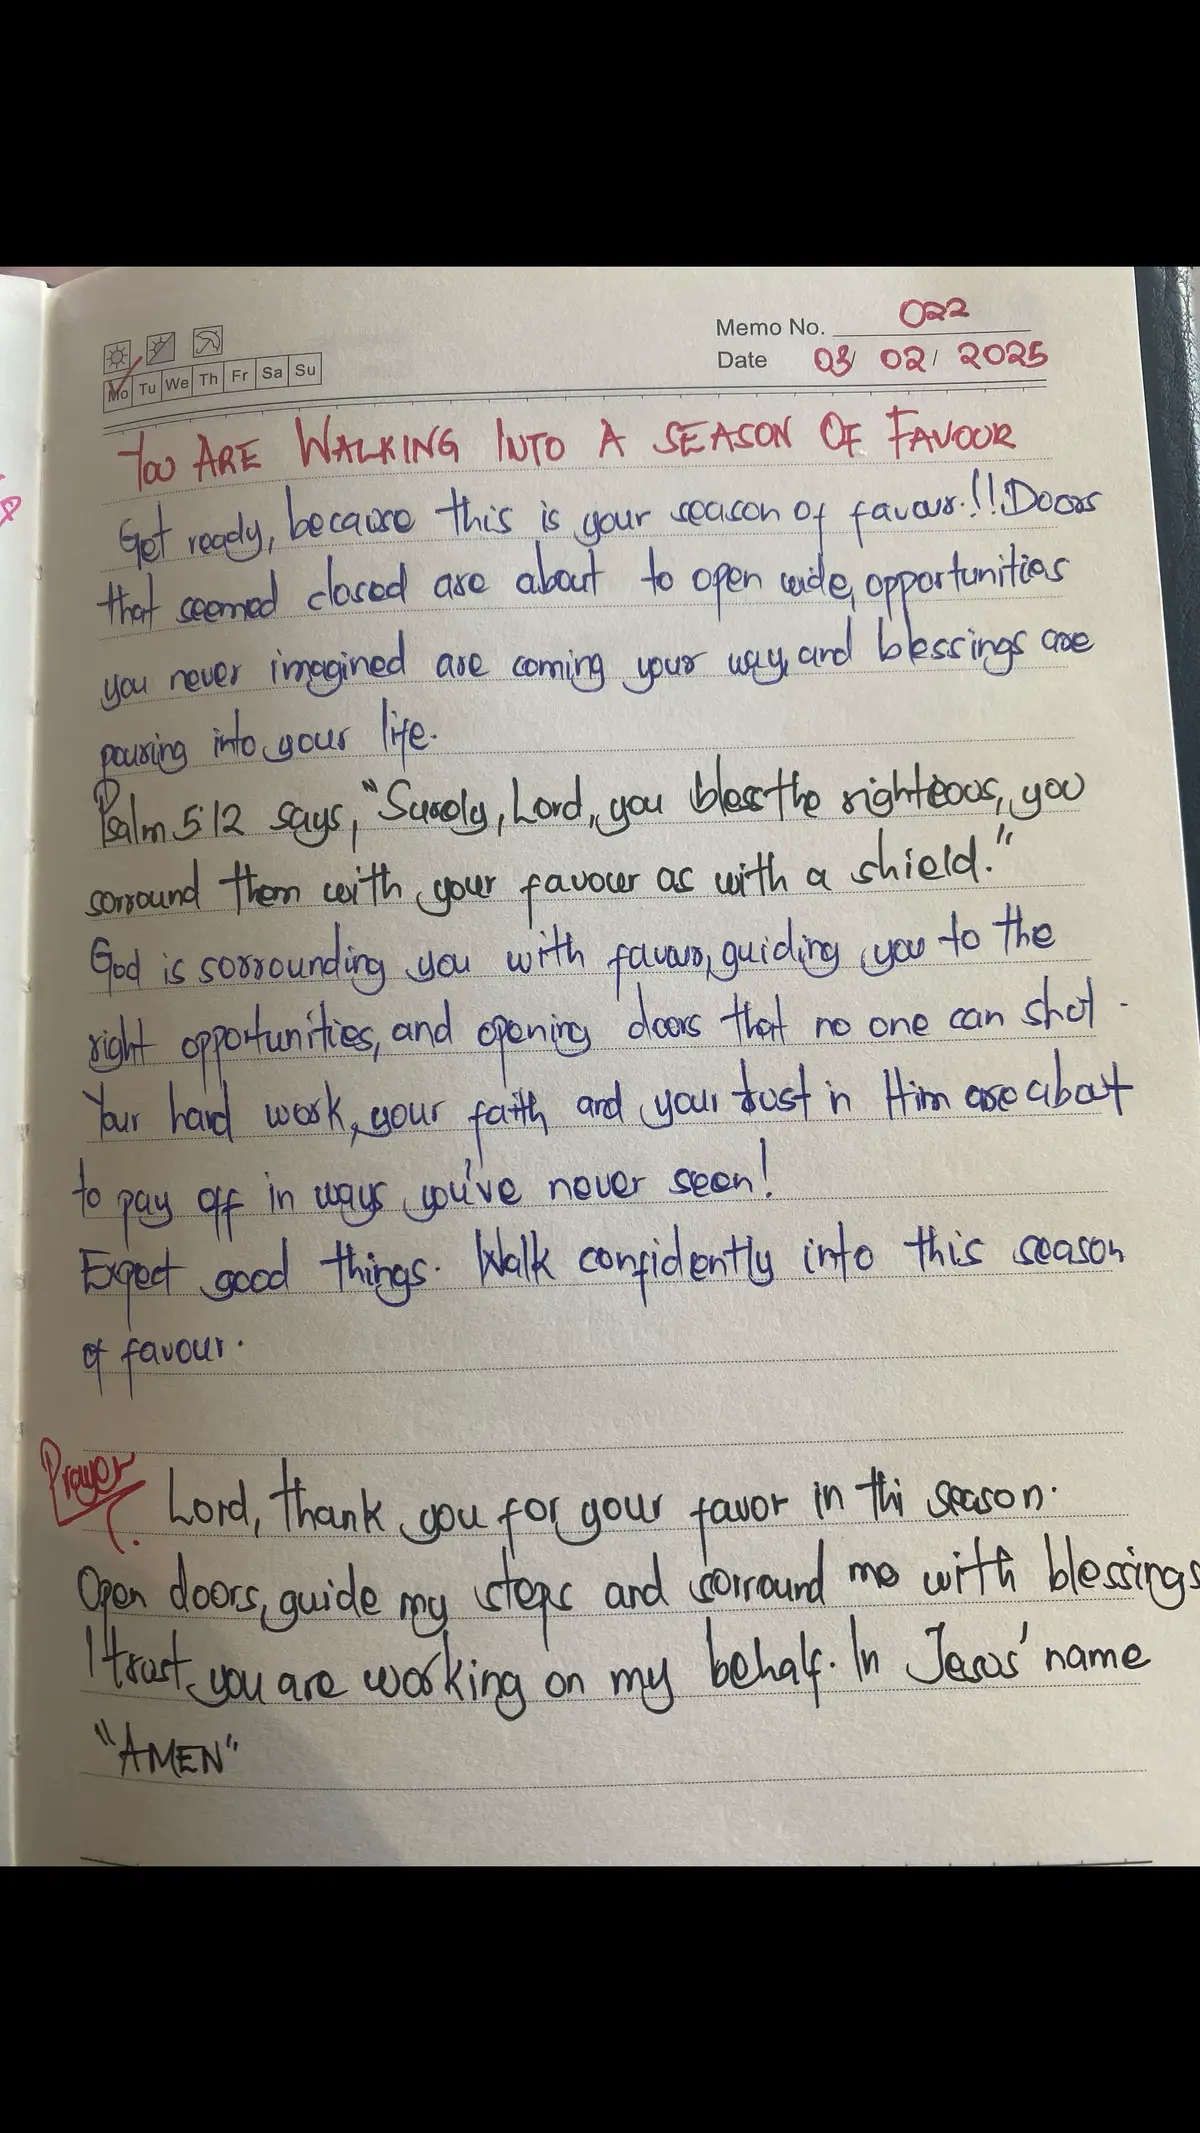 Memo No. 022
Date 03/ 02/ 2025
Mo Tu We Th Fr Sa Su
YOU ARE WALKING INTO A SEASON OF FAVOUR
Get ready, because this is your season of favour.!! Doors
that seemed closed are about to open wide, opportunities
you never imagined are coming your way, and blessings are
pouring into your life.
Psalm 5:12 says, "Surely, Lord, you bless the righteous, you
sorround them with your favour as with a shield."
God is sorrounding you with favour, guiding you to the
right opportunities, and opening doors that no one can shut.
Your hard work, your faith and your trust in Him are about
to pay off in ways you've never seen!
Expect good things. Walk confidently into this season
of favour.
Prayer
Lord, thank you for your favor in thi season.
Open doors, guide my steps and sorround me with blessings
I trust you are working on my behalf. In Jesus' name
"AMEN"